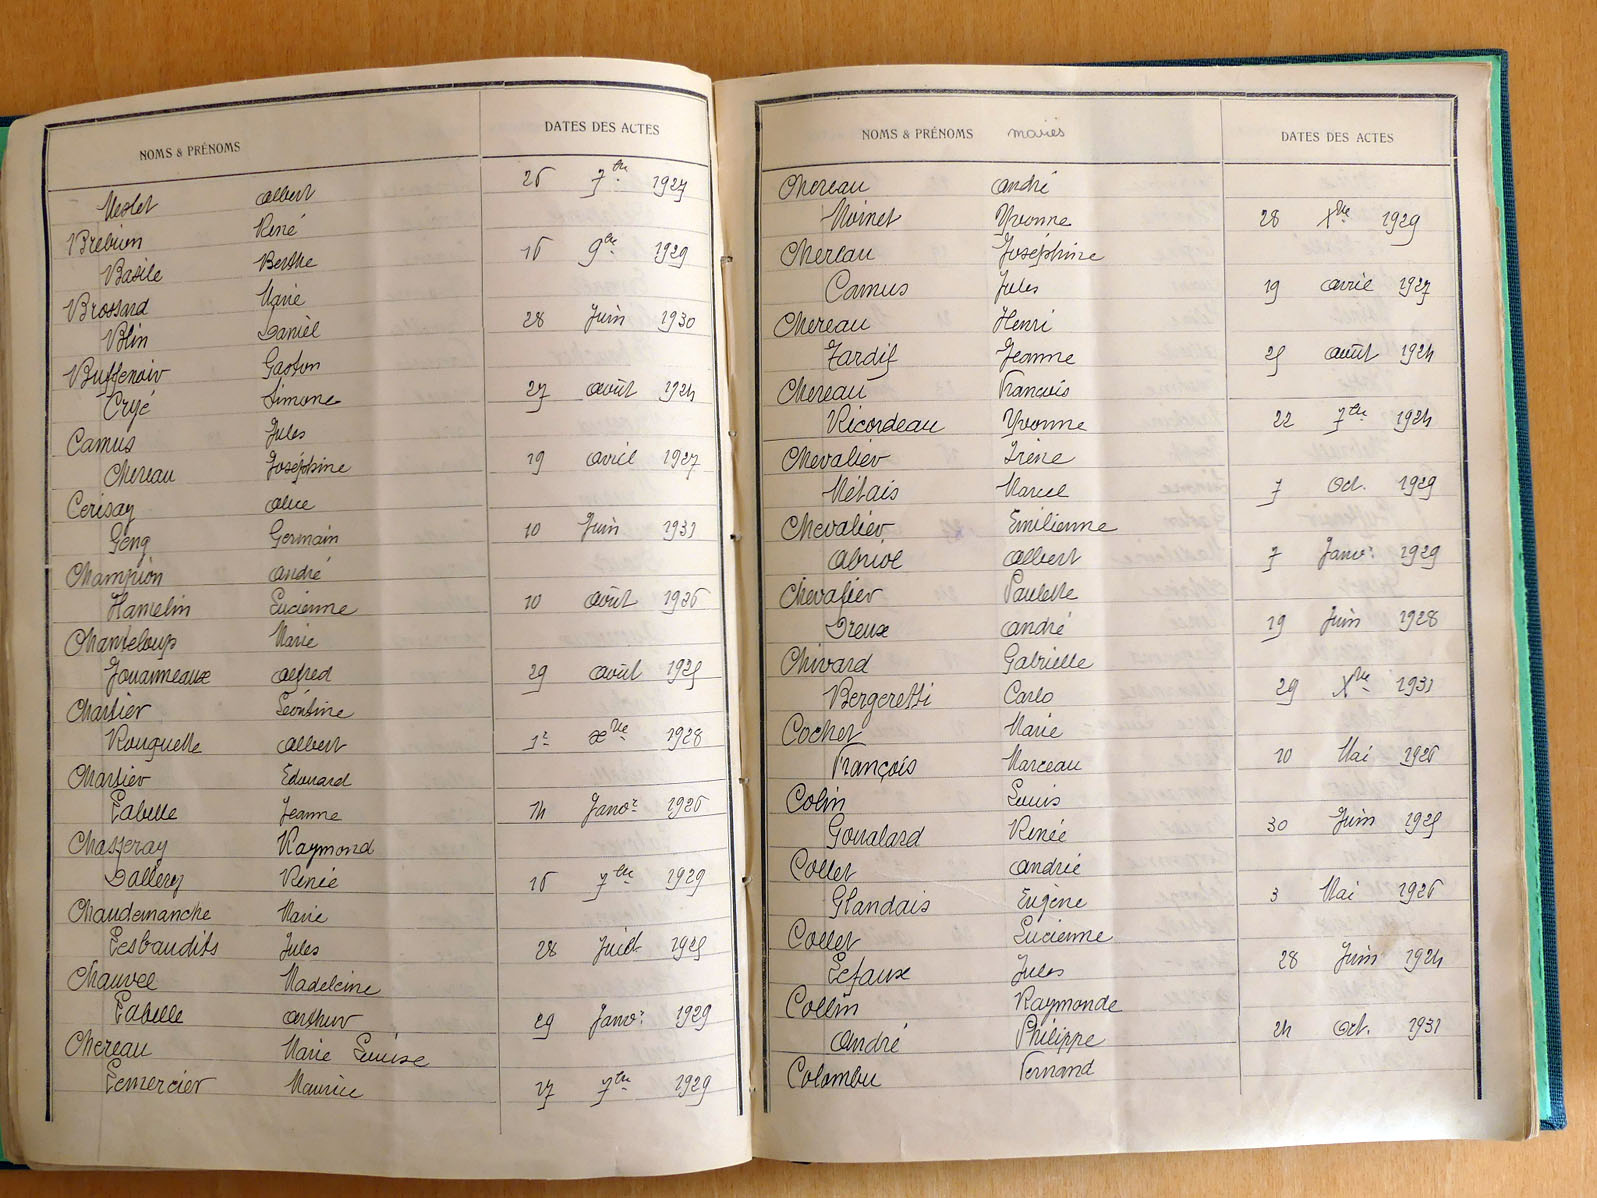 NOMS & PRÉNOMS DATES DES ACTES
Meslet Albert 26 7bre 1927
Brebion René
Basile Berthe 16 9bre 1929
Brossard Marie
Blin Daniel 28 Juin 1930
Buffenoir Gaston
Cryé Simone 27 août 1924
Camus Jules
Chereau Joséphine 19 avril 1927
Cerisay Alice
Geng Germain 10 Juin 1931
Champion André
Hamelin Lucienne 10 août 1926
Chanteloup Marie
Jouanneaux Alfred 29 août 1925
Chartier Léontine
Rouquette Albert 1r Xbre 1928
Chartier Edouard
Labelle Jeanne 14 Janvr 1926
Chasseray Raymond
Dallery Renée 16 7bre 1929
Chaudemanche Marie
Lesbaudits Jules 28 Juilt 1925
Chauvel Madeleine
Labelle Arthur 29 Janvr 1929
Chereau Marie Louise
Lemercier Maurice 17 7bre 1929
NOMS & PRÉNOMS mariés DATES DES ACTES
Chereau André
Moinet Yvonne 28 Xbre 1929
Chereau Joséphine
Camus Jules 19 avril 1927
Chereau Henri
Tardif Jeanne 25 août 1924
Chereau François
Ricordeau Yvonne 22 7bre 1924
Chevalier Irène
Métais Marcel 7 Oct. 1929
Chevalier Emilienne
Abriol Albert 7 Janvr 1929
Chevalier Paulette
Dreux André 19 Juin 1928
Chivard Gabrielle
Bergeretti Carlo 29 Xbre 1931
Cochet Marie
François Marceau 10 Mai 1926
Colin Louis
Goualard Renée 30 Juin 1925
Collet André
Glandais Eugène 3 Mai 1926
Collet Lucienne
Lefaux Jules 28 Juin 1924
Collin Raymonde
André Philippe 24 Oct. 1931
Colombu Fernand